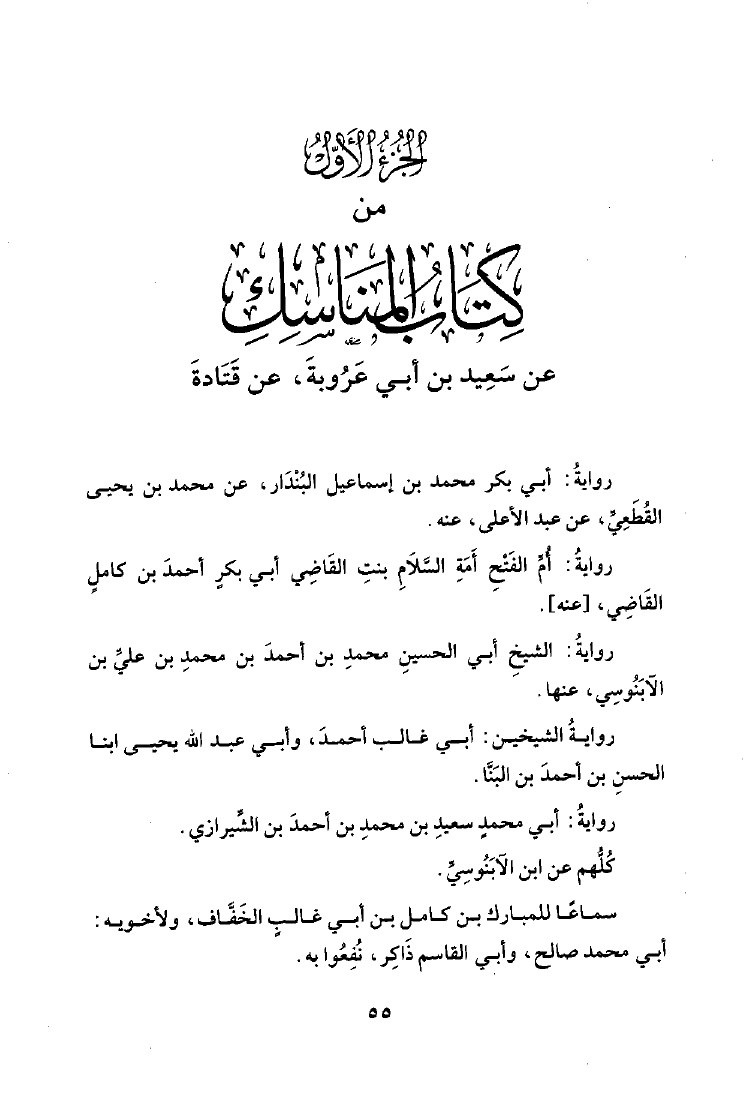 الجُزءُ الأَوَّلُ
من
كِتَابُ المَنَاسِكِ
عن سَعِيد بن أبي عَرُوبةَ، عن قَتَادةَ
روايةُ: أبي بكر محمد بن إسماعيل البُنْدَار، عن محمد بن يحيى
القُطَعِيِّ، عن عبد الأعلى، عنه.
روايةُ: أُمِّ الفَتْحِ أَمَةِ السَّلَامِ بنتِ القَاضِي أبي بكرٍ أحمدَ بن كاملٍ
القَاضِي، [عنه].
روايةُ: الشيخِ أبي الحسينِ محمدِ بن أحمدَ بن محمدِ بن عليِّ بن
الآبَنُوسِي، عنها.
روايةُ الشيخين: أبي غالب أحمدَ، وأبي عبد الله يحيى ابنا
الحسنِ بن أحمدَ بن البَنَّا.
روايةُ: أبي محمدٍ سعيدِ بن محمدِ بن أحمدَ بن الشِّيرازي.
كُلُّهم عن ابن الآبَنُوسِيِّ.
سماعًا للمبارك بن كامل بن أبي غالبٍ الخَفَّاف، ولأخويه:
أبي محمد صالح، وأبي القاسم ذَاكِر، نُفِعُوا به.
٥٥